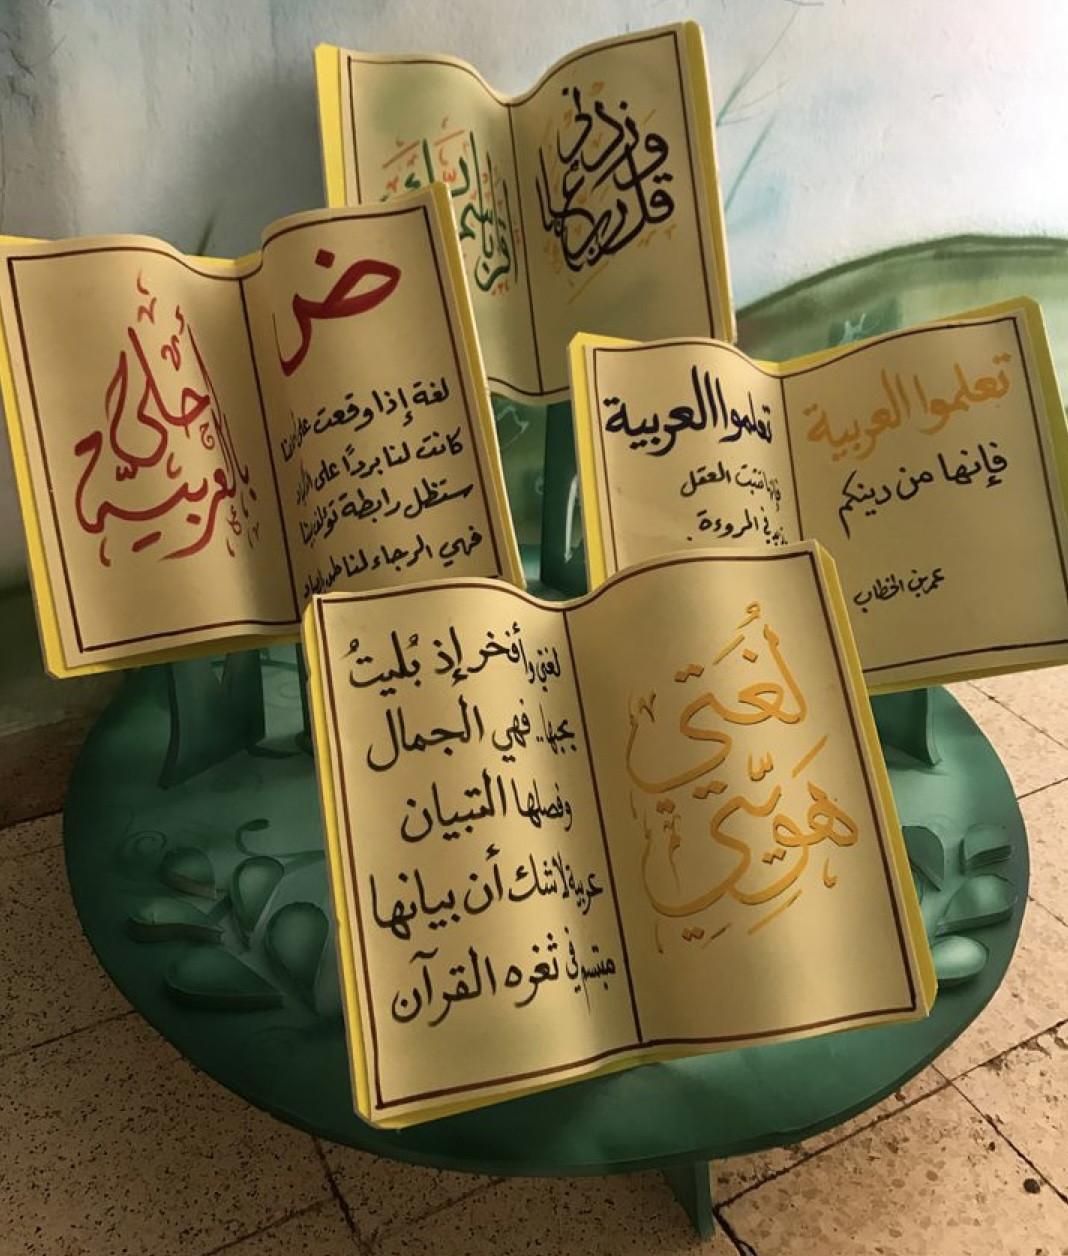 وقل رب
زدني علما
ض
لغة إذا وقعت على
كانت لنا بردًا على
ستظل رابطة تؤلف بيننا
فهي الرجاء لنا
أحلى
بالعربية
تعلموا العربية
فإنها من دينكم
عمر بن الخطاب
تعلموا العربية
فإنها تثبت العقل
في المروءة
لُغَتي
هَويّتي
لغتي وأفخر إذ بُليتُ
بحبها.. فهي الجمال
وفصلها التبيان
عربية لاشك أن بيانها
مبتسم في ثغره القرآن